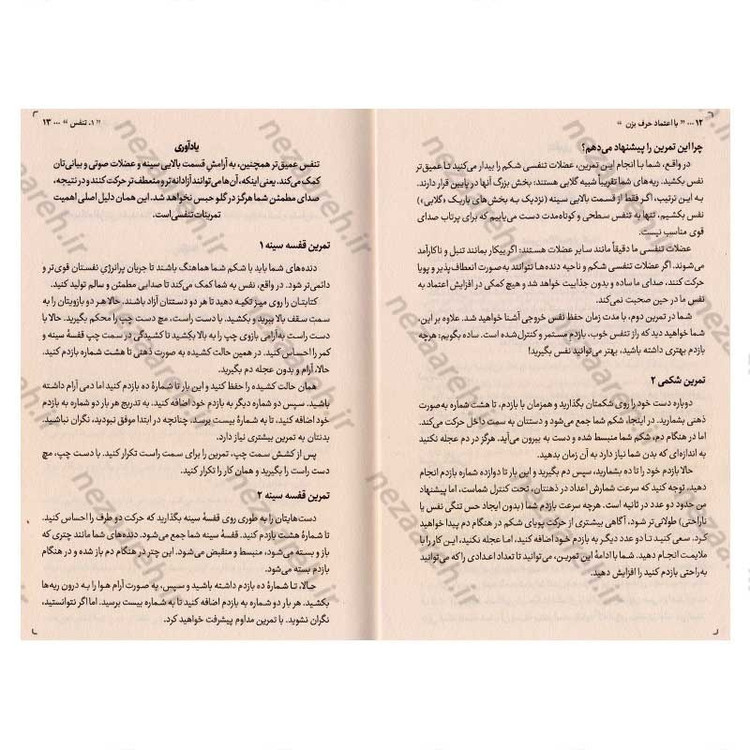 ۱۲ ... « با اعتماد حرف بزن »
چرا این تمرین را پیشنهاد می‌دهم؟
در واقع، شما با انجام این تمرین، عضلات تنفسی شکم را بیدار می‌کنید تا عمیق‌تر
نفس بکشید. ریه‌های شما تقریباً شبیه گلابی هستند: بخش بزرگ آنها در پایین قرار دارند.
به این ترتیب، اگر فقط از قسمت بالایی سینه (نزدیک به بخش‌های باریک «گلابی»)
نفس بکشیم، تنها به تنفس سطحی و کوتاه‌مدت دست می‌یابیم که برای پرتاب صدای
قوی مناسب نیست.
عضلات تنفسی ما دقیقاً مانند سایر عضلات هستند: اگر بیکار بمانند تنبل و ناکارآمد
می‌شوند. اگر عضلات تنفسی شکم و ناحیه دنده‌ها نتوانند به‌صورت انعطاف‌پذیر و پویا
حرکت کنند، صدای ما ساده و بدون جذابیت خواهد شد و هیچ کمکی در افزایش اعتماد به
نفس ما در حین صحبت نمی‌کند.
شما در تمرین دوم، با مدت زمان حفظ نفس خروجی آشنا خواهید شد. علاوه بر این،
شما خواهید دید که راز تنفس خوب، بازدم مستمر و کنترل‌شده است. ساده بگویم: هرچه
بازدم بهتری داشته باشید، بهتر می‌توانید نفس بگیرید!
تمرین شکمی ۲
دوباره دست خود را روی شکمتان بگذارید و همزمان با بازدم، تا هشت شماره به‌صورت
ذهنی بشمارید. در اینجا، شکم شما جمع می‌شود و دستتان به سمت داخل حرکت می‌کند.
اما در هنگام دم، شکم منبسط شده و دست به بیرون می‌آید. هرگز در دم عجله نکنید
به اندازه‌ای که بدن شما نیاز دارد به آن زمان بدهید.
حالا بازدم خود را تا ده بشمارید، سپس دم بگیرید و این بار تا دوازده شماره بازدم انجام
دهید. توجه کنید که سرعت شمارش اعداد در ذهنتان، تحت کنترل شماست، اما پیشنهاد
من حدود دو عدد در ثانیه است. هرچه سرعت بازدم شما (بدون ایجاد حس تنگی نفس یا
ناراحتی) طولانی‌تر شود، آگاهی بیشتری از حرکت پویای شکم در هنگام دم پیدا خواهید
کرد. سعی کنید تا دو عدد دیگر به بازدم خود اضافه کنید، اما عجله نکنید، این کار را با
ملایمت انجام دهید. شما با ادامهٔ این تمرین، می‌توانید تا تعداد اعدادی را که می‌توانید
به‌راحتی بازدم کنید را افزایش دهید.
« ۱. تنفس » ... ۱۳
یادآوری
تنفس عمیق‌تر همچنین، به آرامش قسمت بالایی سینه و عضلات صوتی و بیانی‌تان
کمک می‌کند. یعنی اینکه، آن‌ها می‌توانند آزادانه‌تر و منعطف‌تر حرکت کنند و در نتیجه،
صدای مطمئن شما هرگز در گلو حبس نخواهد شد. این همان دلیل اصلی اهمیت
تمرینات تنفسی است.
تمرین قفسه سینه ۱
دنده‌های شما باید با شکم شما هماهنگ باشند تا جریان پرانرژیِ نفستان قوی‌تر و
دائمی‌تر شود. در واقع، نفس به شما کمک می‌کند تا صدایی مطمئن و سالم تولید کنید.
کتابتان را روی میز تکیه دهید تا هر دو دستتان آزاد باشند. حالا هر دو بازویتان را به
سمت سقف بالا ببرید و بکشید. با دست راست، مچ دست چپ را محکم بگیرید. حالا با
دست راست به‌آرامی بازوی چپ را به بالا بکشید تا کشیدگی در سمت چپ قفسهٔ سینه و
کمر را احساس کنید. در همین حالت کشیده به صورت ذهنی تا هشت شماره بازدم کنید.
حالا، آرام و بدون عجله دم بگیرید.
همان حالت کشیده را حفظ کنید و این بار تا شمارهٔ ده بازدم کنید اما دمی آرام داشته
باشید. سپس دو شماره دیگر به بازدم خود اضافه کنید. به تدریج هر بار دو شماره به بازدم
خود اضافه کنید، تا به شمارهٔ بیست برسید. چنانچه در ابتدا موفق نبودید، نگران نباشید.
بدنتان به تمرین بیشتری نیاز دارد.
پس از کشش سمت چپ، تمرین را برای سمت راست تکرار کنید. با دست چپ، مچ
دست راست را بگیرید و همان کار را تکرار کنید.
تمرین قفسه سینه ۲
دست‌هایتان را به طوری روی قفسهٔ سینه بگذارید که حرکت دو طرف را احساس کنید.
تا شمارهٔ هشت بازدم کنید. قفسهٔ سینه شما جمع می‌شود. دنده‌های شما مانند چتری که
باز و بسته می‌شود، منبسط و منقبض می‌شوند. این چتر در هنگام دم باز شده و در هنگام
بازدم بسته می‌شود.
حالا، تا شمارهٔ ده بازدم داشته باشید و سپس، به صورت آرام هوا را به درون ریه‌ها
بکشید. هر بار دو شماره به بازدم اضافه کنید تا به شماره بیست برسید. اما اگر نتوانستید،
نگران نشوید. با تمرین مداوم پیشرفت خواهید کرد.
nezaareh.ir